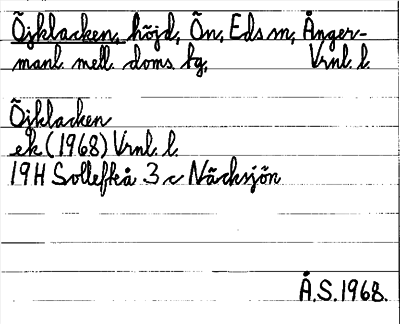 Öjklacken, höjd, Ön, Eds sn, Ånger-
manl. mell. doms. fg, Vrnl. l.
Öjklacken
ek (1968) Vrnl. l.
19H Sollefteå 3 c Näcksjön
Å.S. 1968.